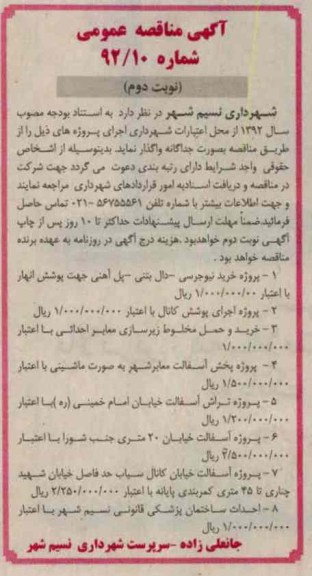 آگهی مناقصه عمومی
شماره ۹۲/۱۰
(نوبت دوم)
شهرداری نسیم شهر در نظر دارد به استناد بودجه مصوب
سال ۱۳۹۲ از محل اعتبارات شهرداری اجرای پروژه های ذیل را از
طریق مناقصه بصورت جداگانه واگذار نماید. بدینوسیله از اشخاص
حقوقی واجد شرایط دارای رتبه بندی دعوت می گردد جهت شرکت
در مناقصه و دریافت اسنادبه امور قراردادهای شهرداری مراجعه نمایند
و جهت اطلاعات بیشتر با شماره تلفن ۵۶۷۵۵۵۶۱-۰۲۱ تماس حاصل
فرمائیدضمناً مهلت ارسال پیشنهادات حداکثر تا ۱۰ روز پس از چاپ
آگهی نوبت دوم خواهدبود .هزینه درج آگهی در روزنامه به عهده برنده
مناقصه خواهد بود .
۱ - پروژه خرید نیوجرسی -دال بتنی -پل آهنی جهت پوشش انهار
با اعتبار ۱/۰۰۰/۰۰۰/۰۰ ریال
۲ - پروژه اجرای پوشش کانال با اعتبار ۱/۰۰۰/۰۰۰/۰۰۰ ریال
۳ - خرید و حمل مخلوط زیرسازی معابر احداثی با اعتبار
۱/۰۰۰/۰۰۰/۰۰۰
۴ - پروژه پخش آسفالت معابرشهر به صورت ماشینی با اعتبار
۱/۵۰۰/۰۰۰/۰۰۰ ریال
۵ - پروژه تراش آسفالت خیابان امام خمینی (ره )با اعتبار
۱/۲۰۰/۰۰۰/۰۰۰ ریال
۶ - پروژه آسفالت خیابان ۲۰ متری جنب شورا با اعتبار
۴/۵۰۰/۰۰۰/۰۰۰ ریال
۷ - پروژه آسفالت خیابان کانال سیاب حد فاصل خیابان شهید
چناری تا ۴۵ متری کمربندی پایانه با اعتبار ۲/۲۵۰/۰۰۰/۰۰۰ ریال
۸ - احداث ساختمان پزشکی قانونی نسیم شهر با اعتبار
۱/۰۰۰/۰۰۰/۰۰۰ ریال
جانعلی زاده -سرپرست شهرداری نسیم شهر